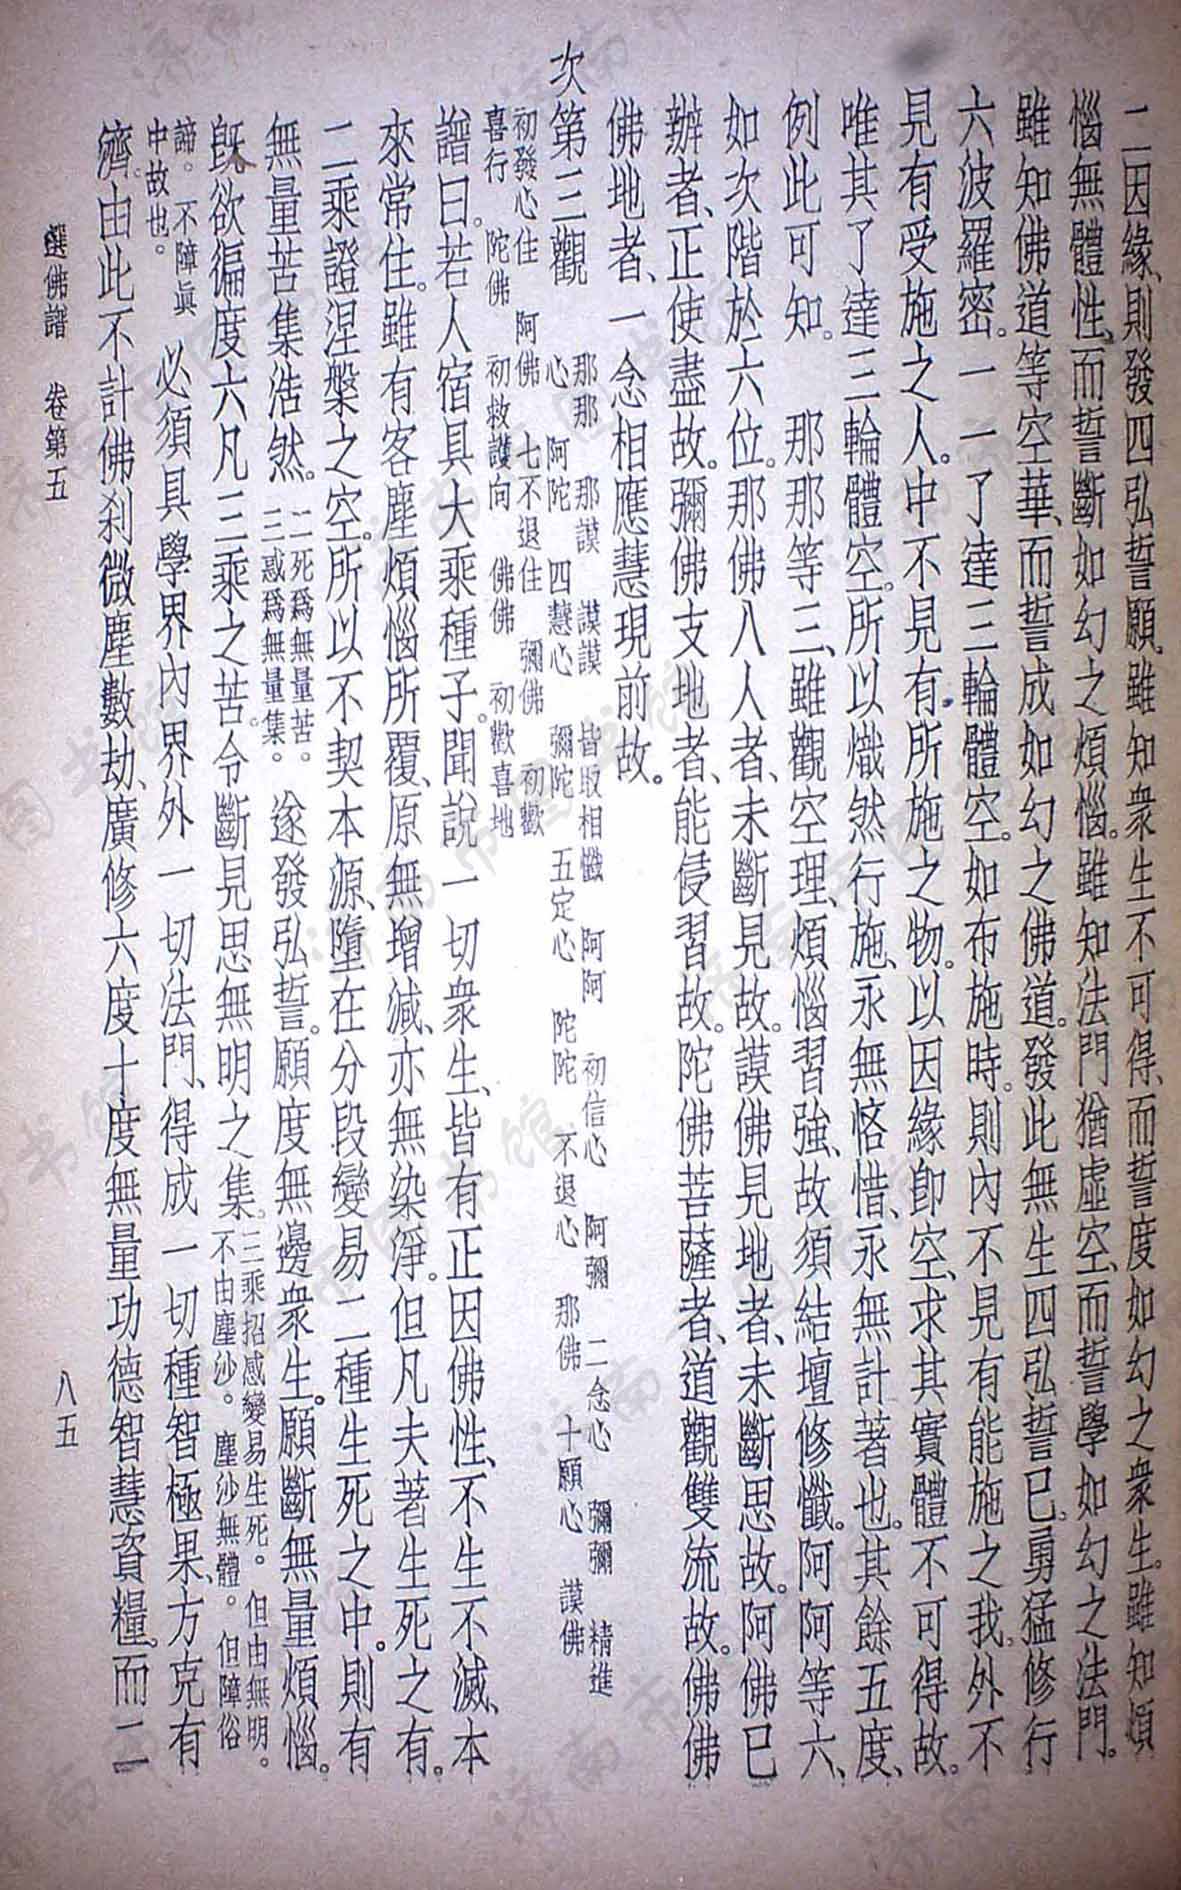 二因緣、則發四弘誓願。雖知衆生不可得、而誓度如幻之衆生。雖知煩
惱無體性、而誓斷如幻之煩惱。雖知法門猶虛空、而誓學如幻之法門。
雖知佛道等空華、而誓成如幻之佛道。發此無生四弘誓已。勇猛修行
六波羅密。一一了達三輪體空。如布施時。則內不見有能施之我。外不
見有受施之人。中不見有所施之物。以因緣卽空、求其實體不可得故。
唯其了達三輪體空。所以熾然行施、永無悋惜、永無計著也。其餘五度、
例此可知。　那那等三、雖觀空理、煩惱習強、故須結壇修懺。阿阿等六、
如次階於六位。那佛八人者、未斷見故。謨佛見地者、未斷思故。阿佛已
辦者、正使盡故。彌佛支地者、能侵習故。陀佛菩薩者、道觀雙流故。佛佛
佛地者、一念相應慧現前故。
次第三觀　那那　那謨　謨謨　皆取相懺　阿阿　初信心　阿彌　二念心　彌彌　精進
心　阿陀　四慧心　彌陀　五定心　陀陀　不退心　那佛　十願心　謨佛
初發心住　阿佛　七不退住　彌佛　初歡
喜行　陀佛　初救護向　佛佛　初歡喜地
譜曰。若人宿具大乘種子。聞說一切衆生、皆有正因佛性、不生不滅、本
來常住。雖有客塵煩惱所覆、原無增減、亦無染淨。但凡夫著生死之有。
二乘證涅槃之空。所以不契本源、墮在分段變易二種生死之中。則有
無量苦集浩然。二死爲無量苦。三惑爲無量集。遂發弘誓。願度無邊衆生。願斷無量煩惱。
旣欲徧度六凡三乘之苦。令斷見思無明之集。三乘招感變易生死。但由無明。不由塵沙。塵沙無體。但障俗
諦。不障眞中故也。必須具學界內界外一切法門、得成一切種智極果、方克有
濟。由此不計佛刹微塵數劫、廣修六度十度無量功德智慧資糧。而二
選佛譜　卷第五　八五